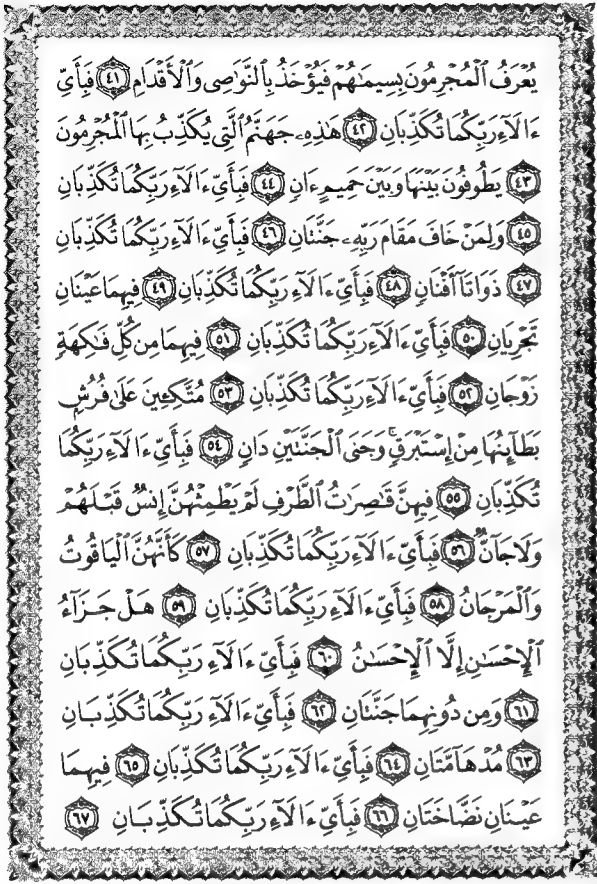 يُعْرَفُ ٱلْمُجْرِمُونَ بِسِيمَـٰهُمْ فَيُؤْخَذُ بِٱلنَّوَٰصِى وَٱلْأَقْدَامِ ٤١ فَبِأَىِّ
ءَالَآءِ رَبِّكُمَا تُكَذِّبَانِ ٤٢ هَـٰذِهِۦ جَهَنَّمُ ٱلَّتِى يُكَذِّبُ بِهَا ٱلْمُجْرِمُونَ
٤٣ يَطُوفُونَ بَيْنَهَا وَبَيْنَ حَمِيمٍ ءَانٍ ٤٤ فَبِأَىِّ ءَالَآءِ رَبِّكُمَا تُكَذِّبَانِ
٤٥ وَلِمَنْ خَافَ مَقَامَ رَبِّهِۦ جَنَّتَانِ ٤٦ فَبِأَىِّ ءَالَآءِ رَبِّكُمَا تُكَذِّبَانِ
٤٧ ذَوَاتَآ أَفْنَانٍ ٤٨ فَبِأَىِّ ءَالَآءِ رَبِّكُمَا تُكَذِّبَانِ ٤٩ فِيهِمَا عَيْنَانِ
تَجْرِيَانِ ٥٠ فَبِأَىِّ ءَالَآءِ رَبِّكُمَا تُكَذِّبَانِ ٥١ فِيهِمَا مِن كُلِّ فَـٰكِهَةٍ
زَوْجَانِ ٥٢ فَبِأَىِّ ءَالَآءِ رَبِّكُمَا تُكَذِّبَانِ ٥٣ مُتَّكِـِٔينَ عَلَىٰ فُرُشٍۭ
بَطَآئِنُهَا مِنْ إِسْتَبْرَقٍ ۚ وَجَنَى ٱلْجَنَّتَيْنِ دَانٍ ٥٤ فَبِأَىِّ ءَالَآءِ رَبِّكُمَا
تُكَذِّبَانِ ٥٥ فِيهِنَّ قَـٰصِرَٰتُ ٱلطَّرْفِ لَمْ يَطْمِثْهُنَّ إِنسٌ قَبْلَهُمْ
وَلَا جَآنٌّ ٥٦ فَبِأَىِّ ءَالَآءِ رَبِّكُمَا تُكَذِّبَانِ ٥٧ كَأَنَّهُنَّ ٱلْيَاقُوتُ
وَٱلْمَرْجَانُ ٥٨ فَبِأَىِّ ءَالَآءِ رَبِّكُمَا تُكَذِّبَانِ ٥٩ هَلْ جَزَآءُ
ٱلْإِحْسَـٰنِ إِلَّا ٱلْإِحْسَـٰنُ ٦٠ فَبِأَىِّ ءَالَآءِ رَبِّكُمَا تُكَذِّبَانِ
٦١ وَمِن دُونِهِمَا جَنَّتَانِ ٦٢ فَبِأَىِّ ءَالَآءِ رَبِّكُمَا تُكَذِّبَانِ
٦٣ مُدْهَآمَّتَانِ ٦٤ فَبِأَىِّ ءَالَآءِ رَبِّكُمَا تُكَذِّبَانِ ٦٥ فِيهِمَا
عَيْنَانِ نَضَّاخَتَانِ ٦٦ فَبِأَىِّ ءَالَآءِ رَبِّكُمَا تُكَذِّبَانِ ٦٧